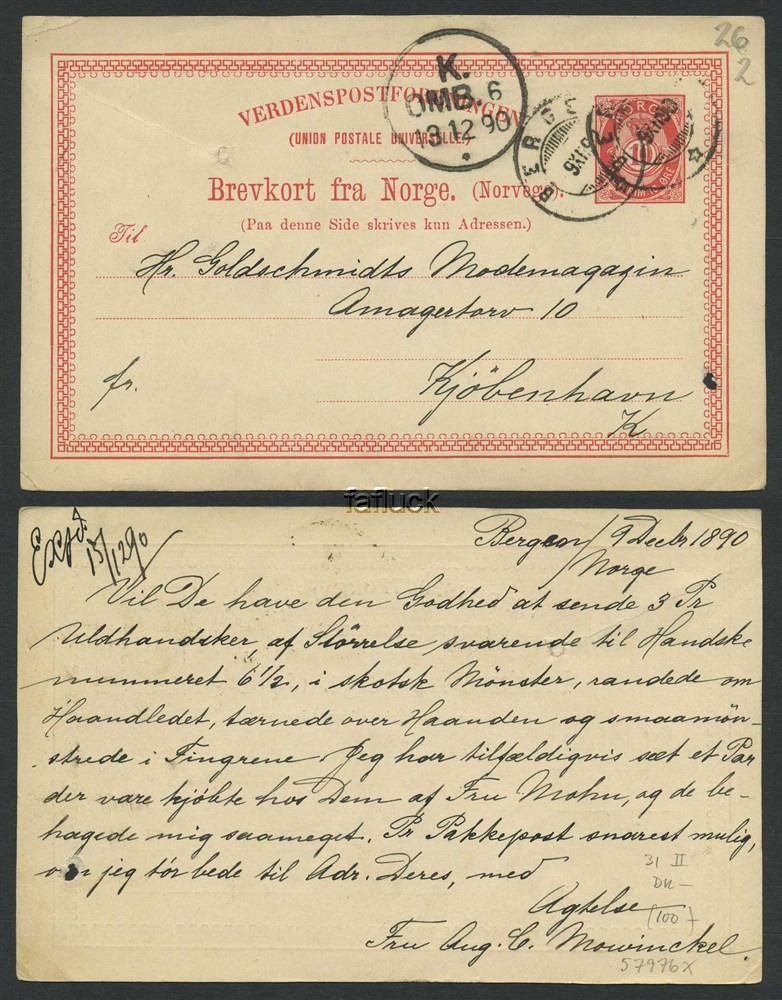 26
2
K.
OMB. 6
13.12 90
VERDENSPOSTFORENINGEN
(UNION POSTALE UNIVERSELLE.)
BERGEN
NORGE
Brevkort fra Norge. (Norvege).
(Paa denne Side skrives kun Adressen.)
Til
Hr. Goldschmidts Modemagazin
Amagertorv 10
fr.
Kjöbenhavn
K
fafluck
Exp d.
15/12 90
Bergen / 9 Decbr 1890
Norge
Vil De have den Godhed at sende 3 Pr
Uldhandsker, af Störrelse svarende til Handske
nummeret 6 1/2, i skotsk Mönster, randede om
Haandledet, tærnede over Haanden og smaamön-
strede i Fingrene. Jeg har tilfældigvis sæt et Par
der vare kjöbte hos Dem af Fru Mohn, og de be-
hagede mig saameget. Pr Pakkepost snarest mulig,
om jeg tör bede til Adr. Deres, med
Agtelse
Fru Aug. C. Mowinckel.
31 II
DK-
(100)
57976x